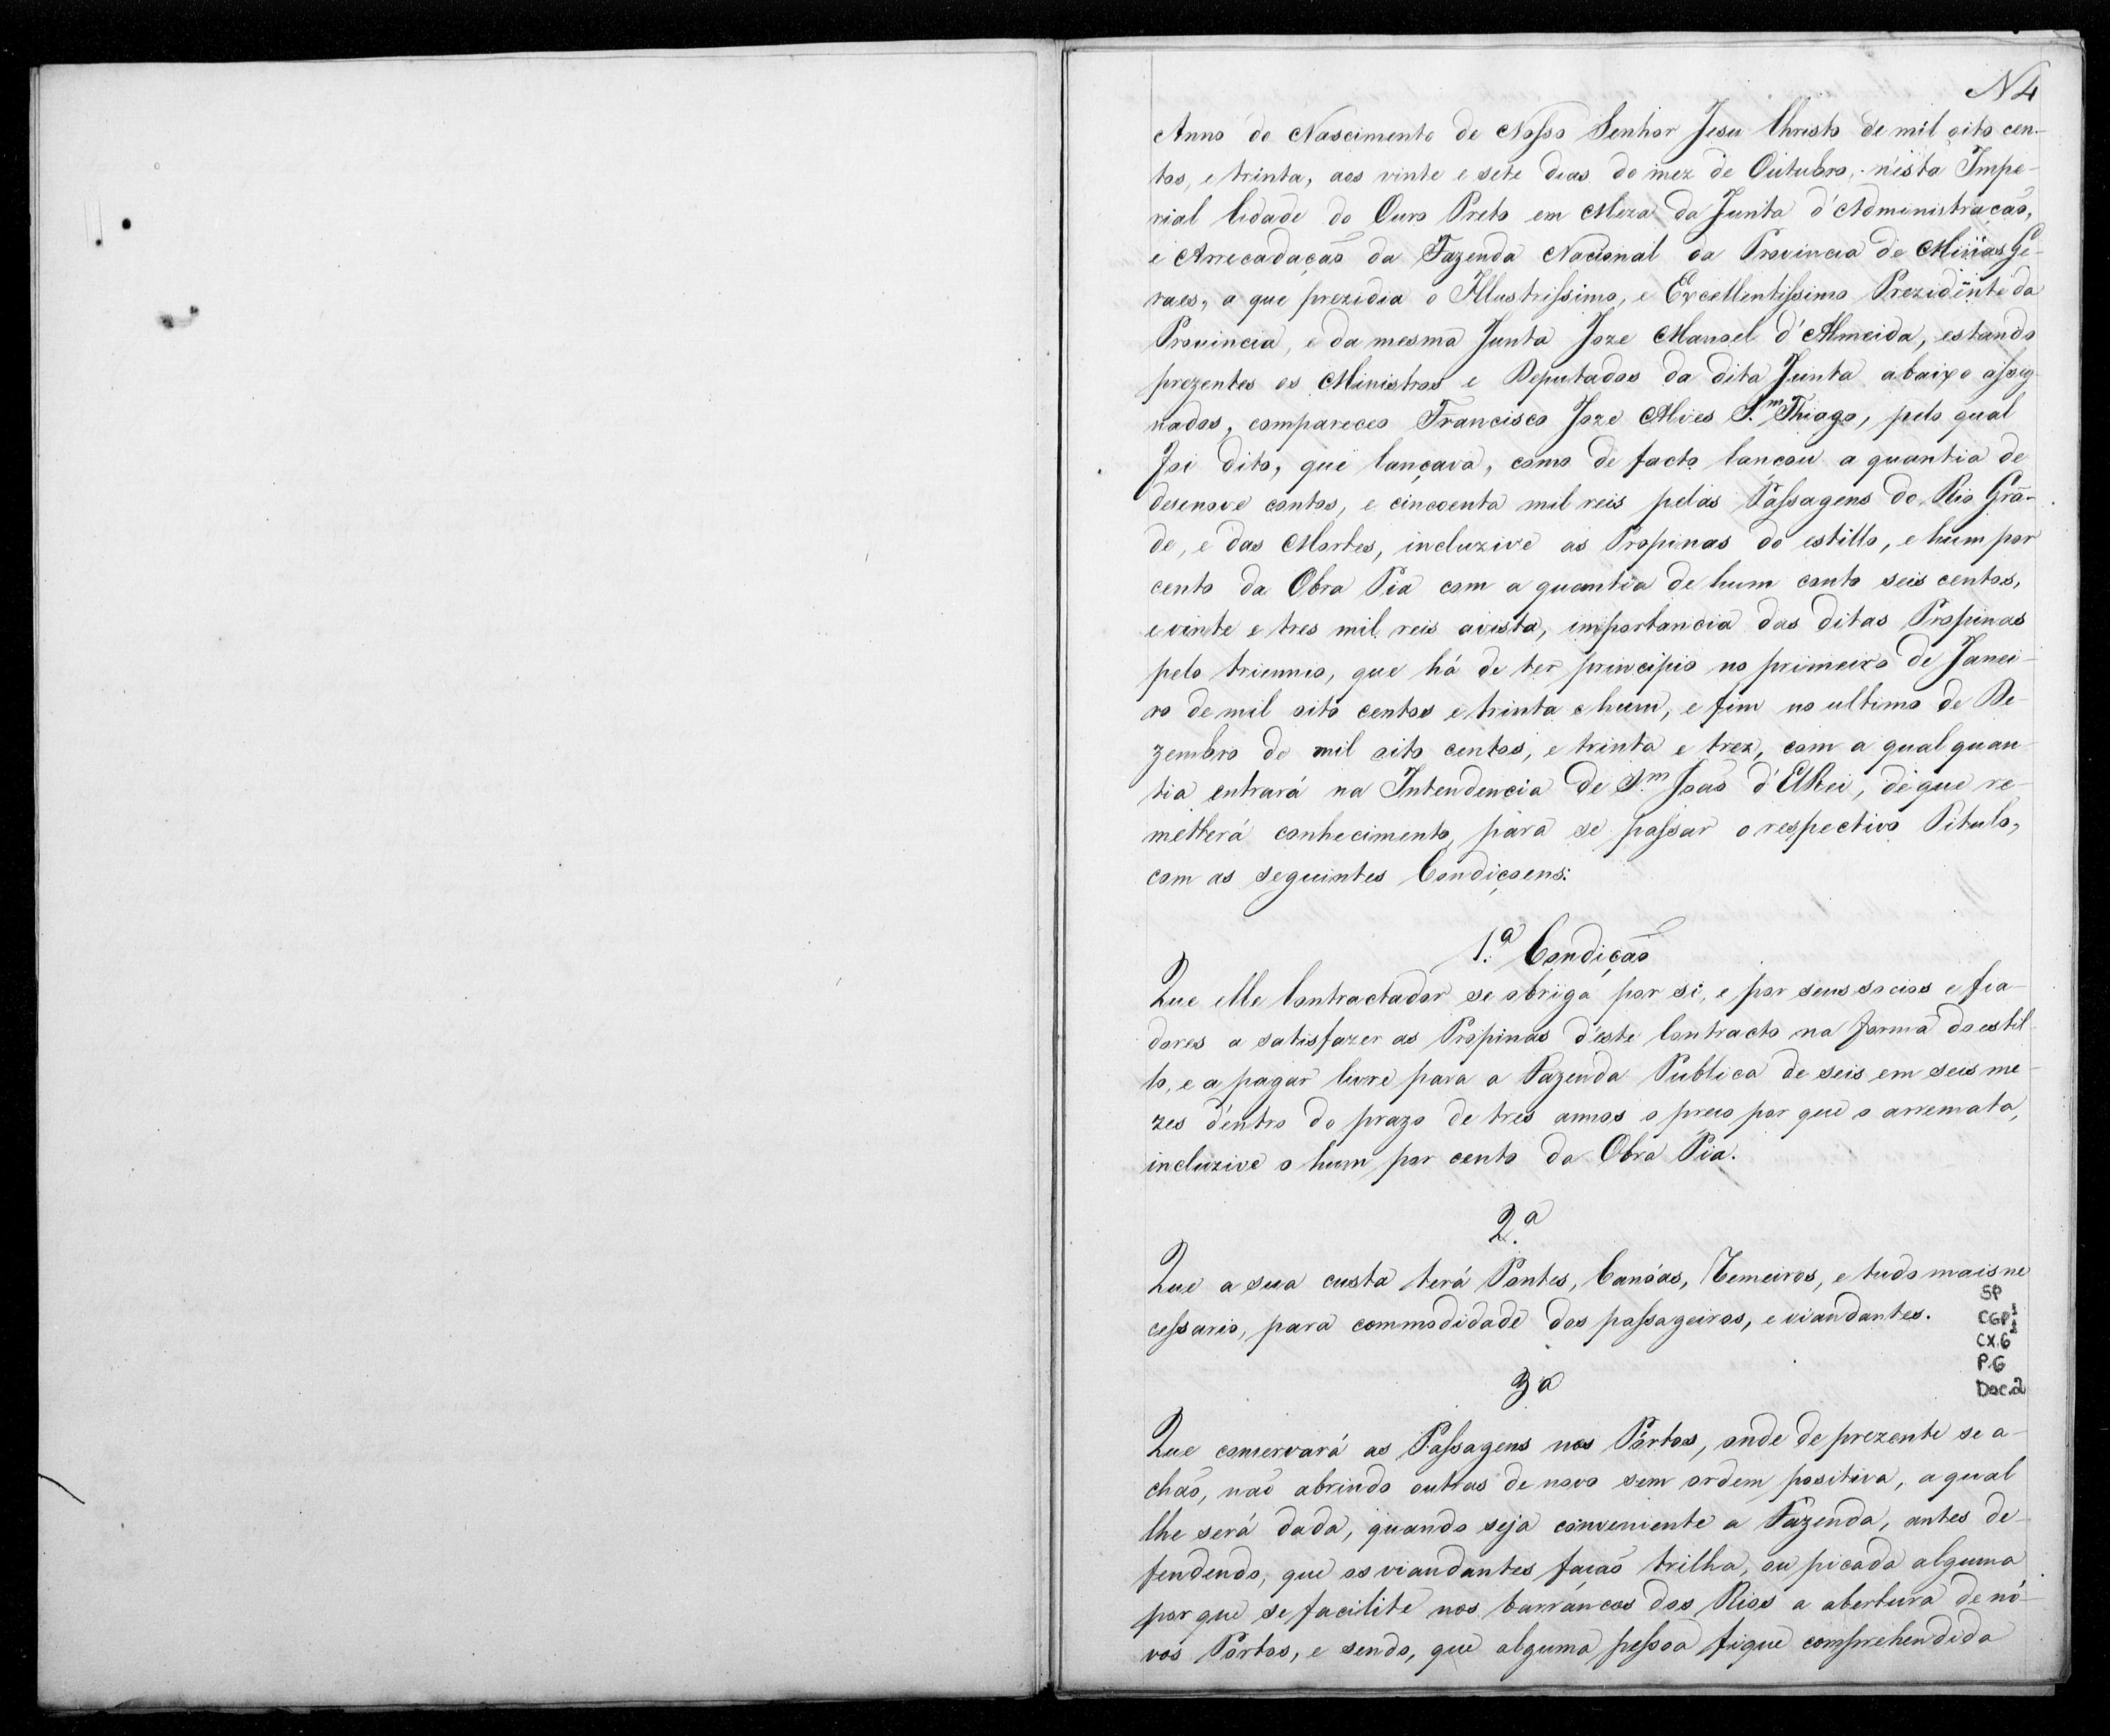 N 4
Anno do Nascimento de Nosso Senhor Jesu Christo de mil oito cen-
tos, e trinta, aos vinte e sete dias do mez de Outubro, n'ésta Impe-
rial Cidade do Ouro Preto em Meza da Junta d'Administração,
e Arrecadação da Fazenda Nacional da Provincia de Minas Ge-
raes, a que prezidia o Illustrissimo, e Excellentissimo Prezidente da
Provincia, e da mesma Junta Joze Manoel d'Almeida, estando
prezentes os Ministros e Deputados da dita Junta abaixo assig-
nados, compareceo Francisco Joze Alves S.m Thiago, pelo qual
foi dito, que lançava, como de facto lançou a quantia de
desenove contos, e cincoenta mil reis pelas Passagens do Rio Gran-
de, e das Mortes, incluzive as Propinas do estillo, e hum por
cento da Obra Pia com a quantia de hum conto seis centos,
e vinte e tres mil reis avista, importancia das ditas Propinas
pelo triennio, que há de ter principio no primeiro de Janei-
ro de mil oito centos e trinta e hum, e fim no ultimo de De-
zembro de mil oito centos, e trinta e trez, com a qual quan-
tia entrará na Intendencia de S.m João d'ElRei, de que re-
metterá conhecimento, para se passar o respectivo Titulo,
com as seguintes Condiçoens:
1.ª Condição
Que elle Contractador se obriga por si, e por seus socios e fia-
dores a satisfazer as Propinas d'éste Contracto na forma do estil-
lo, e a pagar livre para a Fazenda Publica de seis em seis me-
zes dentro do prazo de tres annos o preço por que o arremata,
incluzive o hum por cento da Obra Pia.
2.ª
Que a sua custa terá Pontes, Canôas, Remeiros, e tudo mais ne
cessario, para commodidade dos passageiros, e viandantes.
SP
CGP 1/2
CX.6
P.6
Doc.2
3ª
Que conservará as Passagens nos Pórtos, onde de prezente se a-
chão, não abrindo outras de novo sem ordem positiva, a qual
lhe será dada, quando seja conveniente a Fazenda, antes de-
fendendo, que os viandantes fação trilha, ou picada alguma
por que se facilite nos barráncos dos Rios a abertura de nó-
vos Pórtos, e sendo, que alguma pessoa fique comprehendida